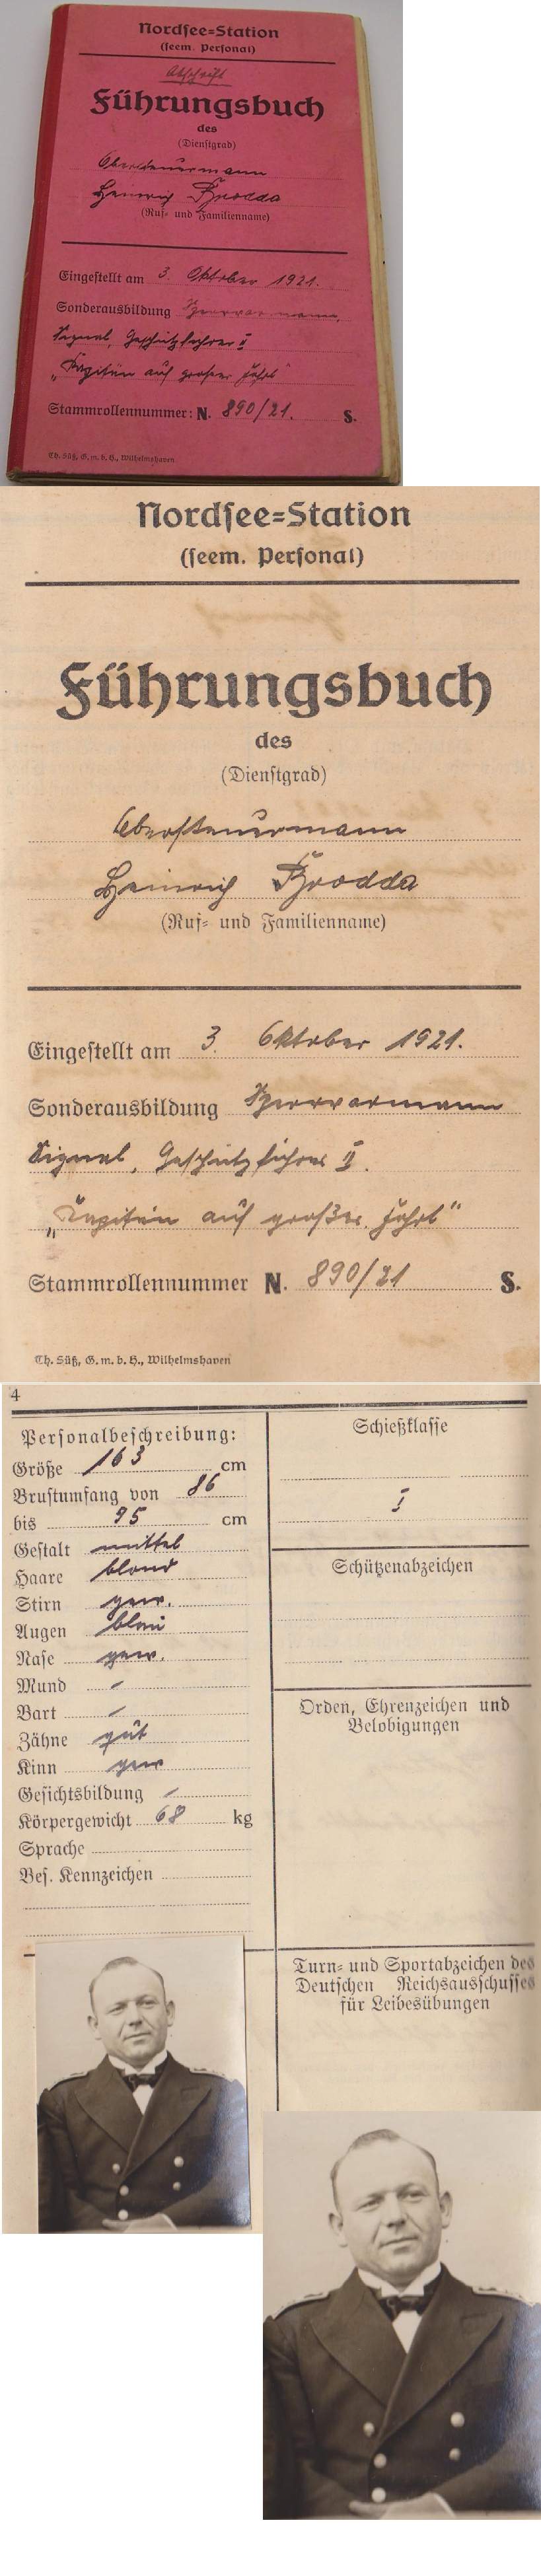 Nordsee=Station
(seem. Personal)
Abschrift
Führungsbuch
des
(Dienstgrad)
Obersteuermann
Heinrich Brodda
(Ruf= und Familienname)
Eingestellt am 3. Oktober 1921.
Sonderausbildung Sperrvormann,
Signal, Geschützführer II
„Kapitän auf großer Fahrt"
Stammrollennummer: N. 890/21. S.
Th. Süß, G. m. b. H., Wilhelmshaven
Nordsee=Station
(seem. Personal)
Führungsbuch
des
(Dienstgrad)
Obersteuermann
Heinrich Brodda
(Ruf= und Familienname)
Eingestellt am 3. Oktober 1921.
Sonderausbildung Sperrvormann
Signal, Geschützführer II.
„Kapitän auf großer Fahrt"
Stammrollennummer N. 890/21 S.
Th. Süß, G. m. b. H., Wilhelmshaven
4
Personalbeschreibung:
Größe 163 cm
Brustumfang von 86
bis 95 cm
Gestalt mittel
Haare blond
Stirn gew.
Augen blau
Nase gew.
Mund -
Bart -
Zähne gut
Kinn gew
Gesichtsbildung -
Körpergewicht 68 kg
Sprache
Bes. Kennzeichen
Schießklasse
I
Schützenabzeichen
Orden, Ehrenzeichen und
Belobigungen
Turn= und Sportabzeichen des
Deutschen Reichsausschusses
für Leibesübungen